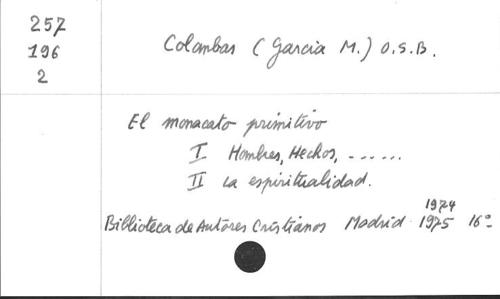 257
196
2
Colombas (Garcia M.) O.S.B.
El monacato primitivo
I Hombres, Hechos, ------
II La espiritualidad.
1974
Biblioteca de Autores Cristianos Madrid 1975 16°